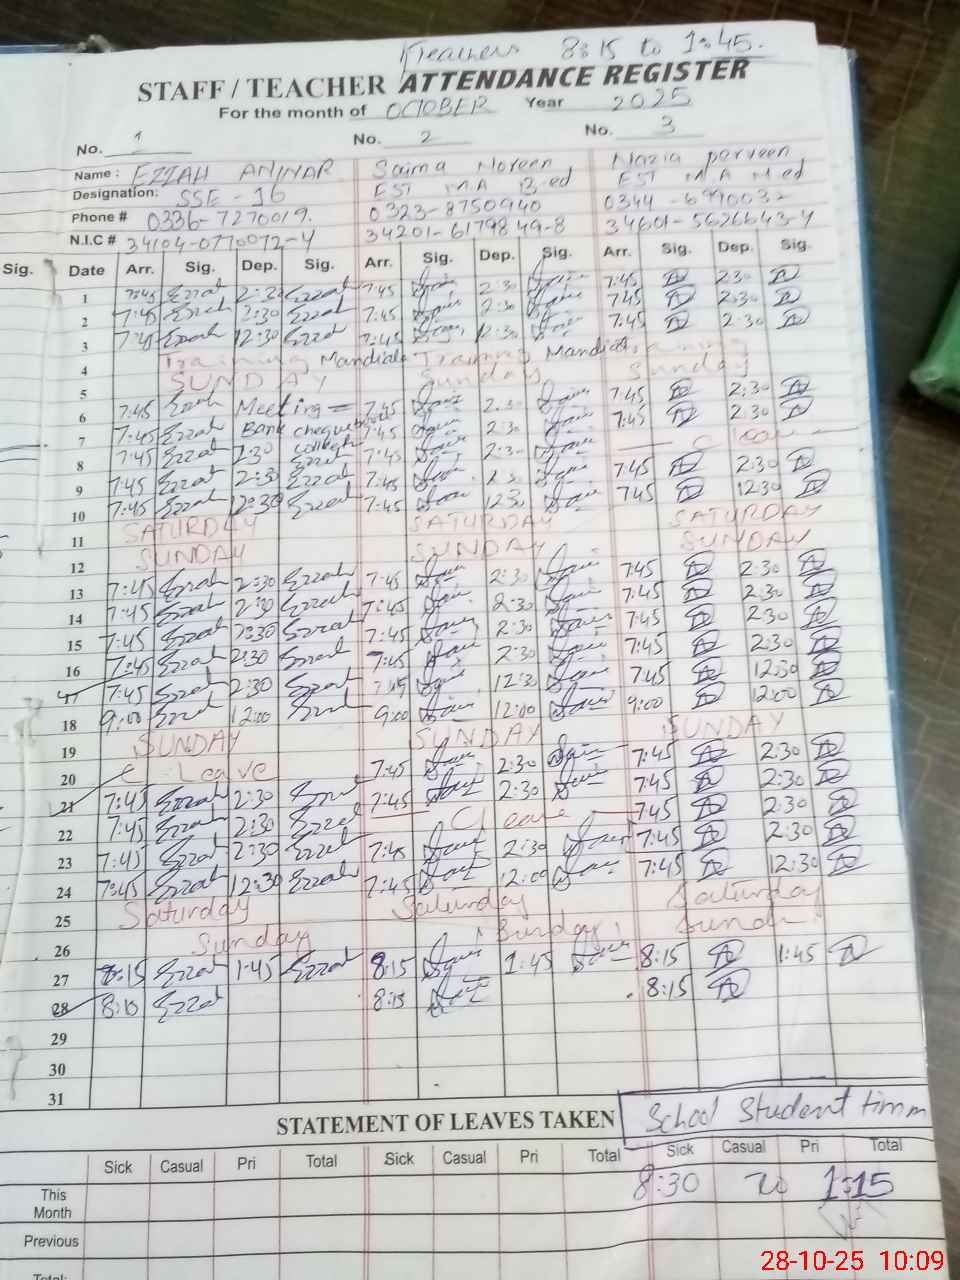 teachers 8:15 to 1:45.
STAFF / TEACHER ATTENDANCE REGISTER
For the month of OCTOBER Year 2025
No. 1 No. 2 No. 3
Name : Saima Noreen Nazia perveen
Designation: SSE - 16 EST M A B.ed EST M A M ed
Phone # 0336-7270019. 0323-8750940
N.I.C # 34104-0770072-4 34201-6179849-8 34601-5626643-4
Sig. Date Arr. Sig. Dep. Sig. Arr. Sig. Dep. Sig. Arr. Sig. Dep. Sig.
1 7:45 2:30 7:45 2:30 7:45 2:30
2 7:45 2:30 7:45 2:30 7:45 2:30
3 7:45 12:30 7:45 12:30 7:45 2:30
4 Training Mandiala Training Mandiala Training
5 SUNDAY Sunday Sunday
6 7:45 Meeting 7:45 2:30 7:45 2:30
7 7:45 Bank cheque 7:45 2:30 7:45 2:30
8 7:45 2:30 7:45 2:30 C leave
9 7:45 2:30 7:45 2:30 7:45 2:30
10 7:45 12:30 7:45 12:30 7:45 12:30
11 SATURDAY SATURDAY SATURDAY
12 SUNDAY SUNDAY SUNDAY
13 7:45 2:30 7:45 2:30 7:45 2:30
14 7:45 2:30 7:45 2:30 7:45 2:30
15 7:45 2:30 7:45 2:30 7:45 2:30
16 7:45 2:30 7:45 2:30 7:45 2:30
17 7:45 2:30 7:45 12:30 7:45 12:30
18 9:00 12:00 9:00 12:00 9:00 12:00
19 SUNDAY SUNDAY SUNDAY
20 C Leave 7:45 2:30 7:45 2:30
21 7:45 2:30 7:45 2:30 7:45 2:30
22 7:45 2:30 C leave 7:45 2:30
23 7:45 2:30 7:45 2:30 7:45 2:30
24 7:45 12:30 7:45 12:00 7:45 12:30
25 Saturday Saturday Saturday
26 Sunday Sunday Sunday
27 8:15 1:45 8:15 1:45 8:15 1:45
28 8:15 8:15 8:15
29
30
31
STATEMENT OF LEAVES TAKEN School Student timm
Sick Casual Pri Total Sick Casual Pri Total Sick Casual Pri Total
This Month 8:30 to 1:15
Previous
Total:
28-10-25 10:09